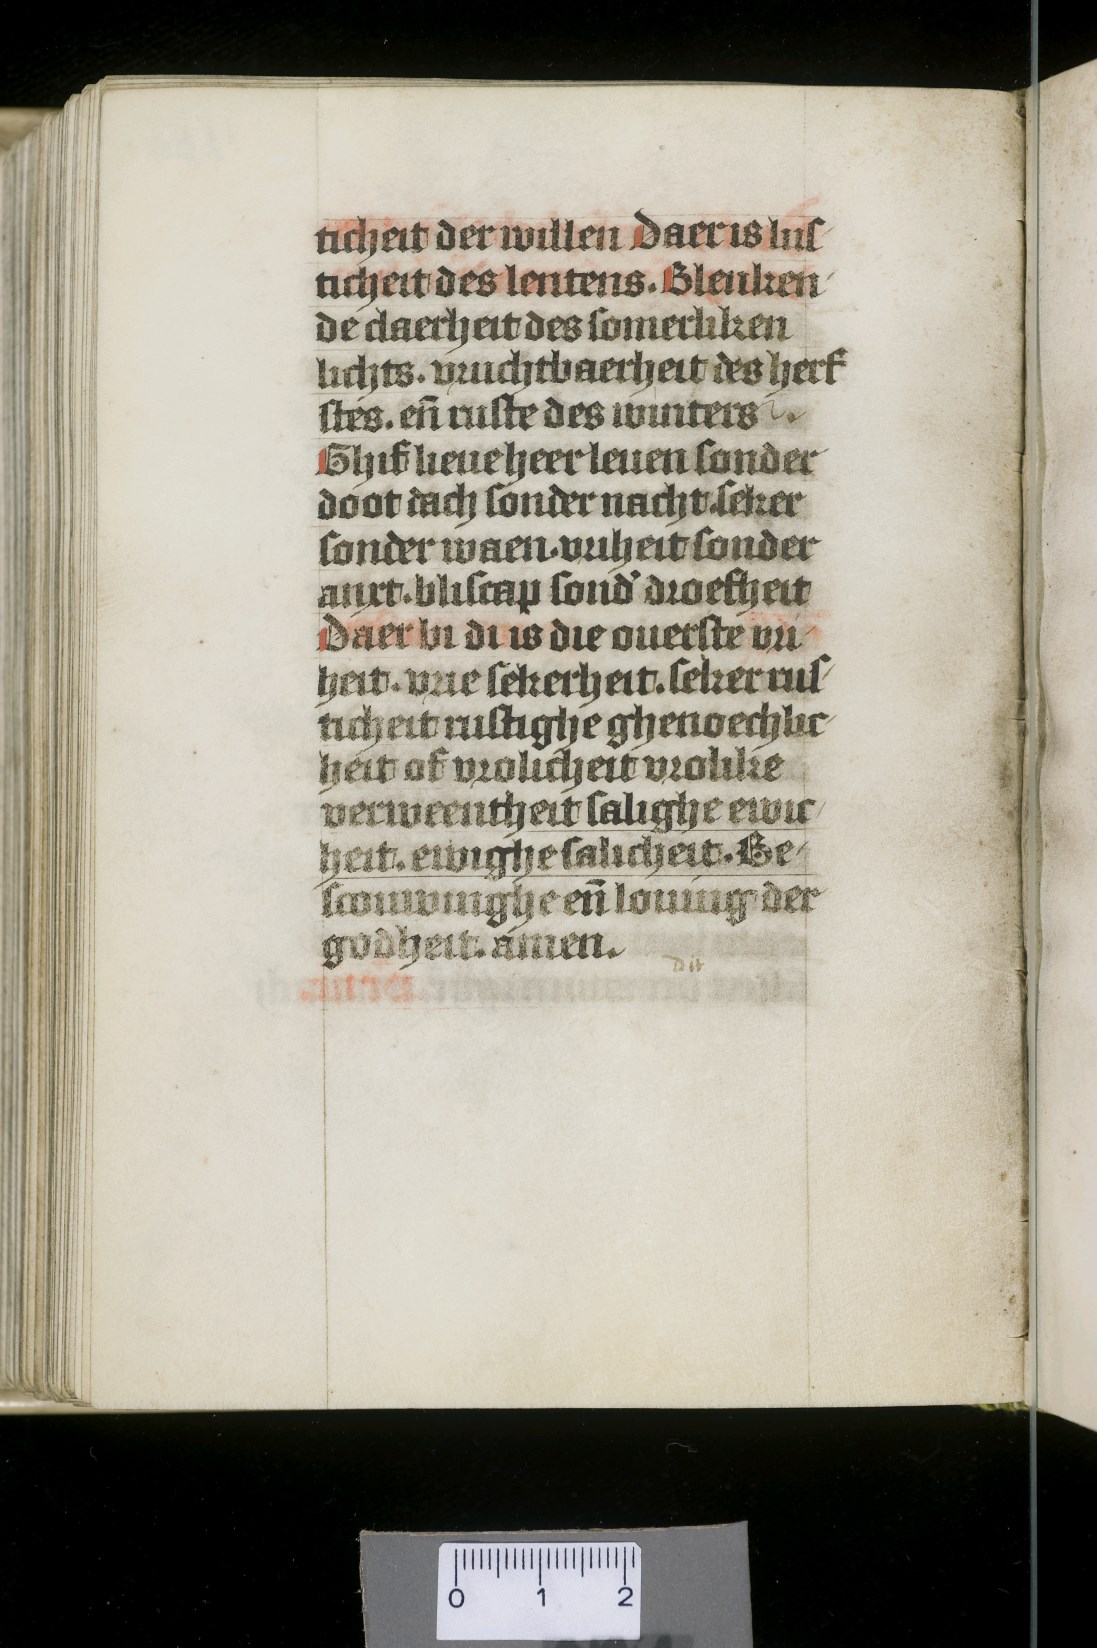 ticheit der willen Daer is lus
ticheit des lentens. Blenken
de claerheit des somerliken
lichts. vruchtbaerheit des herf
stes. en̄ ruste des winters
Ghif lieue heer leuen sonder
doot dach sonder nacht. seker
sonder waen. vriheit sonder
anxt. bliscap sond' droefheit
Daer bi di is die ouerste vri
heit. vrie sekerheit. seker rus
ticheit rustighe ghenoechlic
heit of vrolicheit vrolike
verweentheit salighe ewic
heit. ewighe salicheit. Be
scouwinghe en̄ louing der
godheit. amen.
Dit
0 1 2